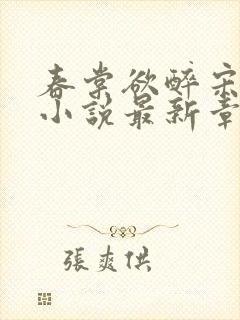 春棠欲醉宋
小說最新章
張爽供